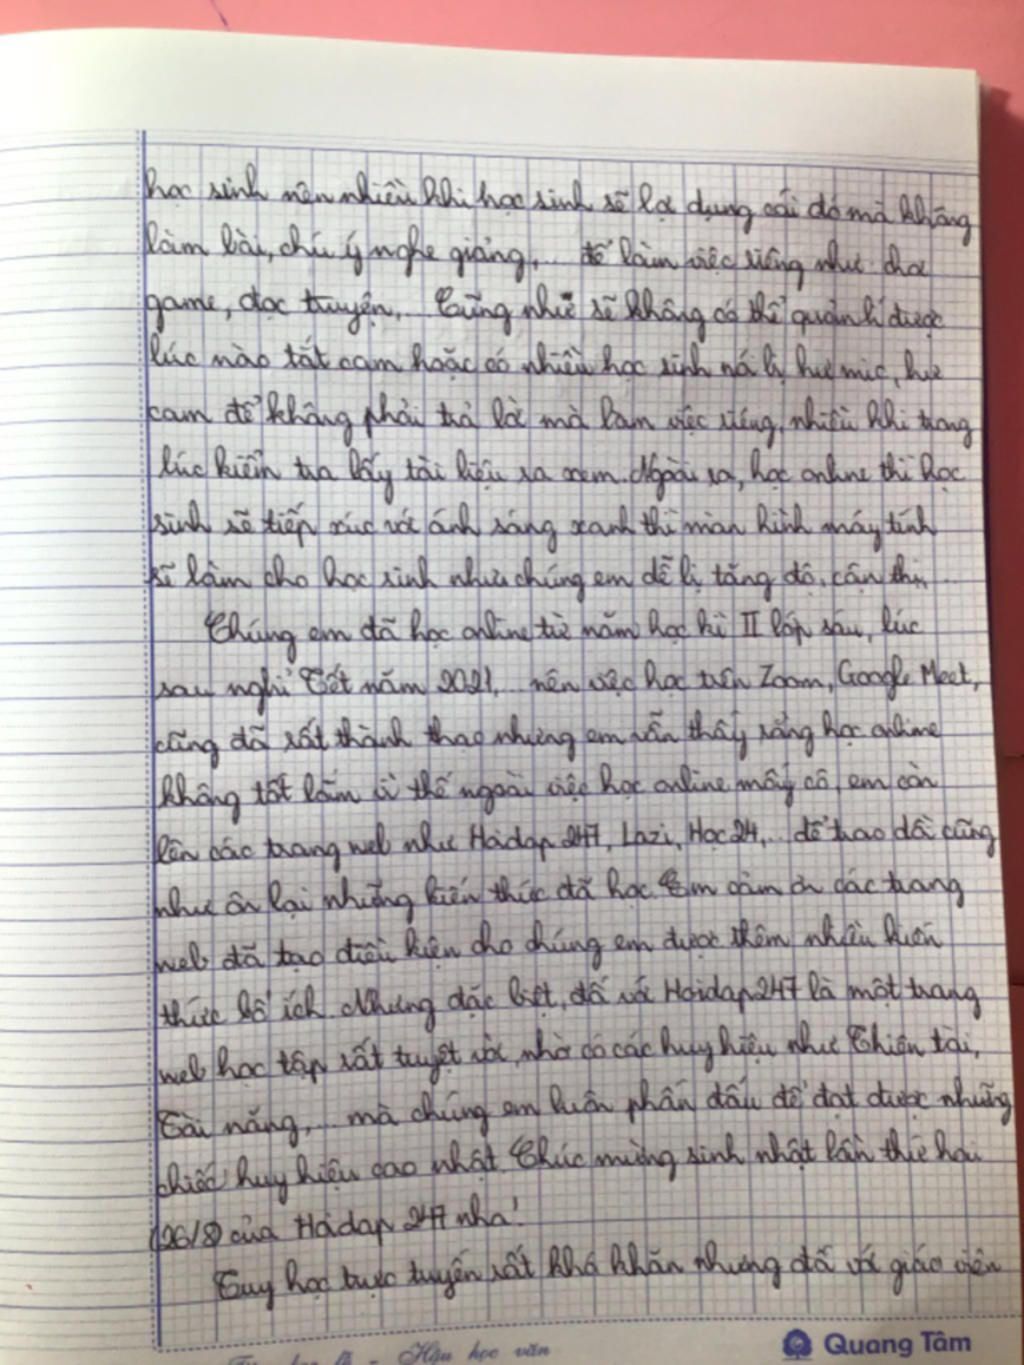 học sinh nên nhiều khi học sinh sẽ lợi dụng cái đó mà không
làm bài, chú ý nghe giảng,... để làm việc riêng như chơi
game, đọc truyện,... Cũng như sẽ không có thể quản lí được
lúc nào tắt cam hoặc có nhiều học sinh nói bị hư mic, hư
cam để không phải trả lời mà làm việc riêng, nhiều khi trong
lúc kiểm tra lấy tài liệu ra xem. Ngoài ra, học online thì học
sinh sẽ tiếp xúc với ánh sáng xanh thì màn hình máy tính
sẽ làm cho học sinh như chúng em dễ bị tăng độ, cận thị,...
Chúng em đã học online từ năm học kì II lớp sáu, lúc
sau nghỉ Tết năm 2021,... nên việc học trên Zoom, Google Meet,
cũng đã rất thành thạo nhưng em vẫn thấy rằng học online
không tốt lắm vì thế ngoài việc học online mấy cô, em còn
lên các trang web như Hoidap247, Lazi, Hoc24,... để trao dồi cũng
như ôn lại những kiến thức đã học. Em cảm ơn các trang
web đã tạo điều kiện cho chúng em được thêm nhiều kiến
thức bổ ích. Nhưng đặc biệt, đối với Hoidap247 là một trang
web học tập rất tuyệt vời, nhờ có các huy hiệu như Thiên tài,
Tài năng,... mà chúng em luôn phấn đấu để đạt được những
chiếc huy hiệu cao nhất. Chúc mừng sinh nhật lần thứ hai
(26/8) của Hoidap247 nha!
Tuy học trực tuyến rất khó khăn nhưng đối với giáo viên
Hậu học văn
Quang Tâm